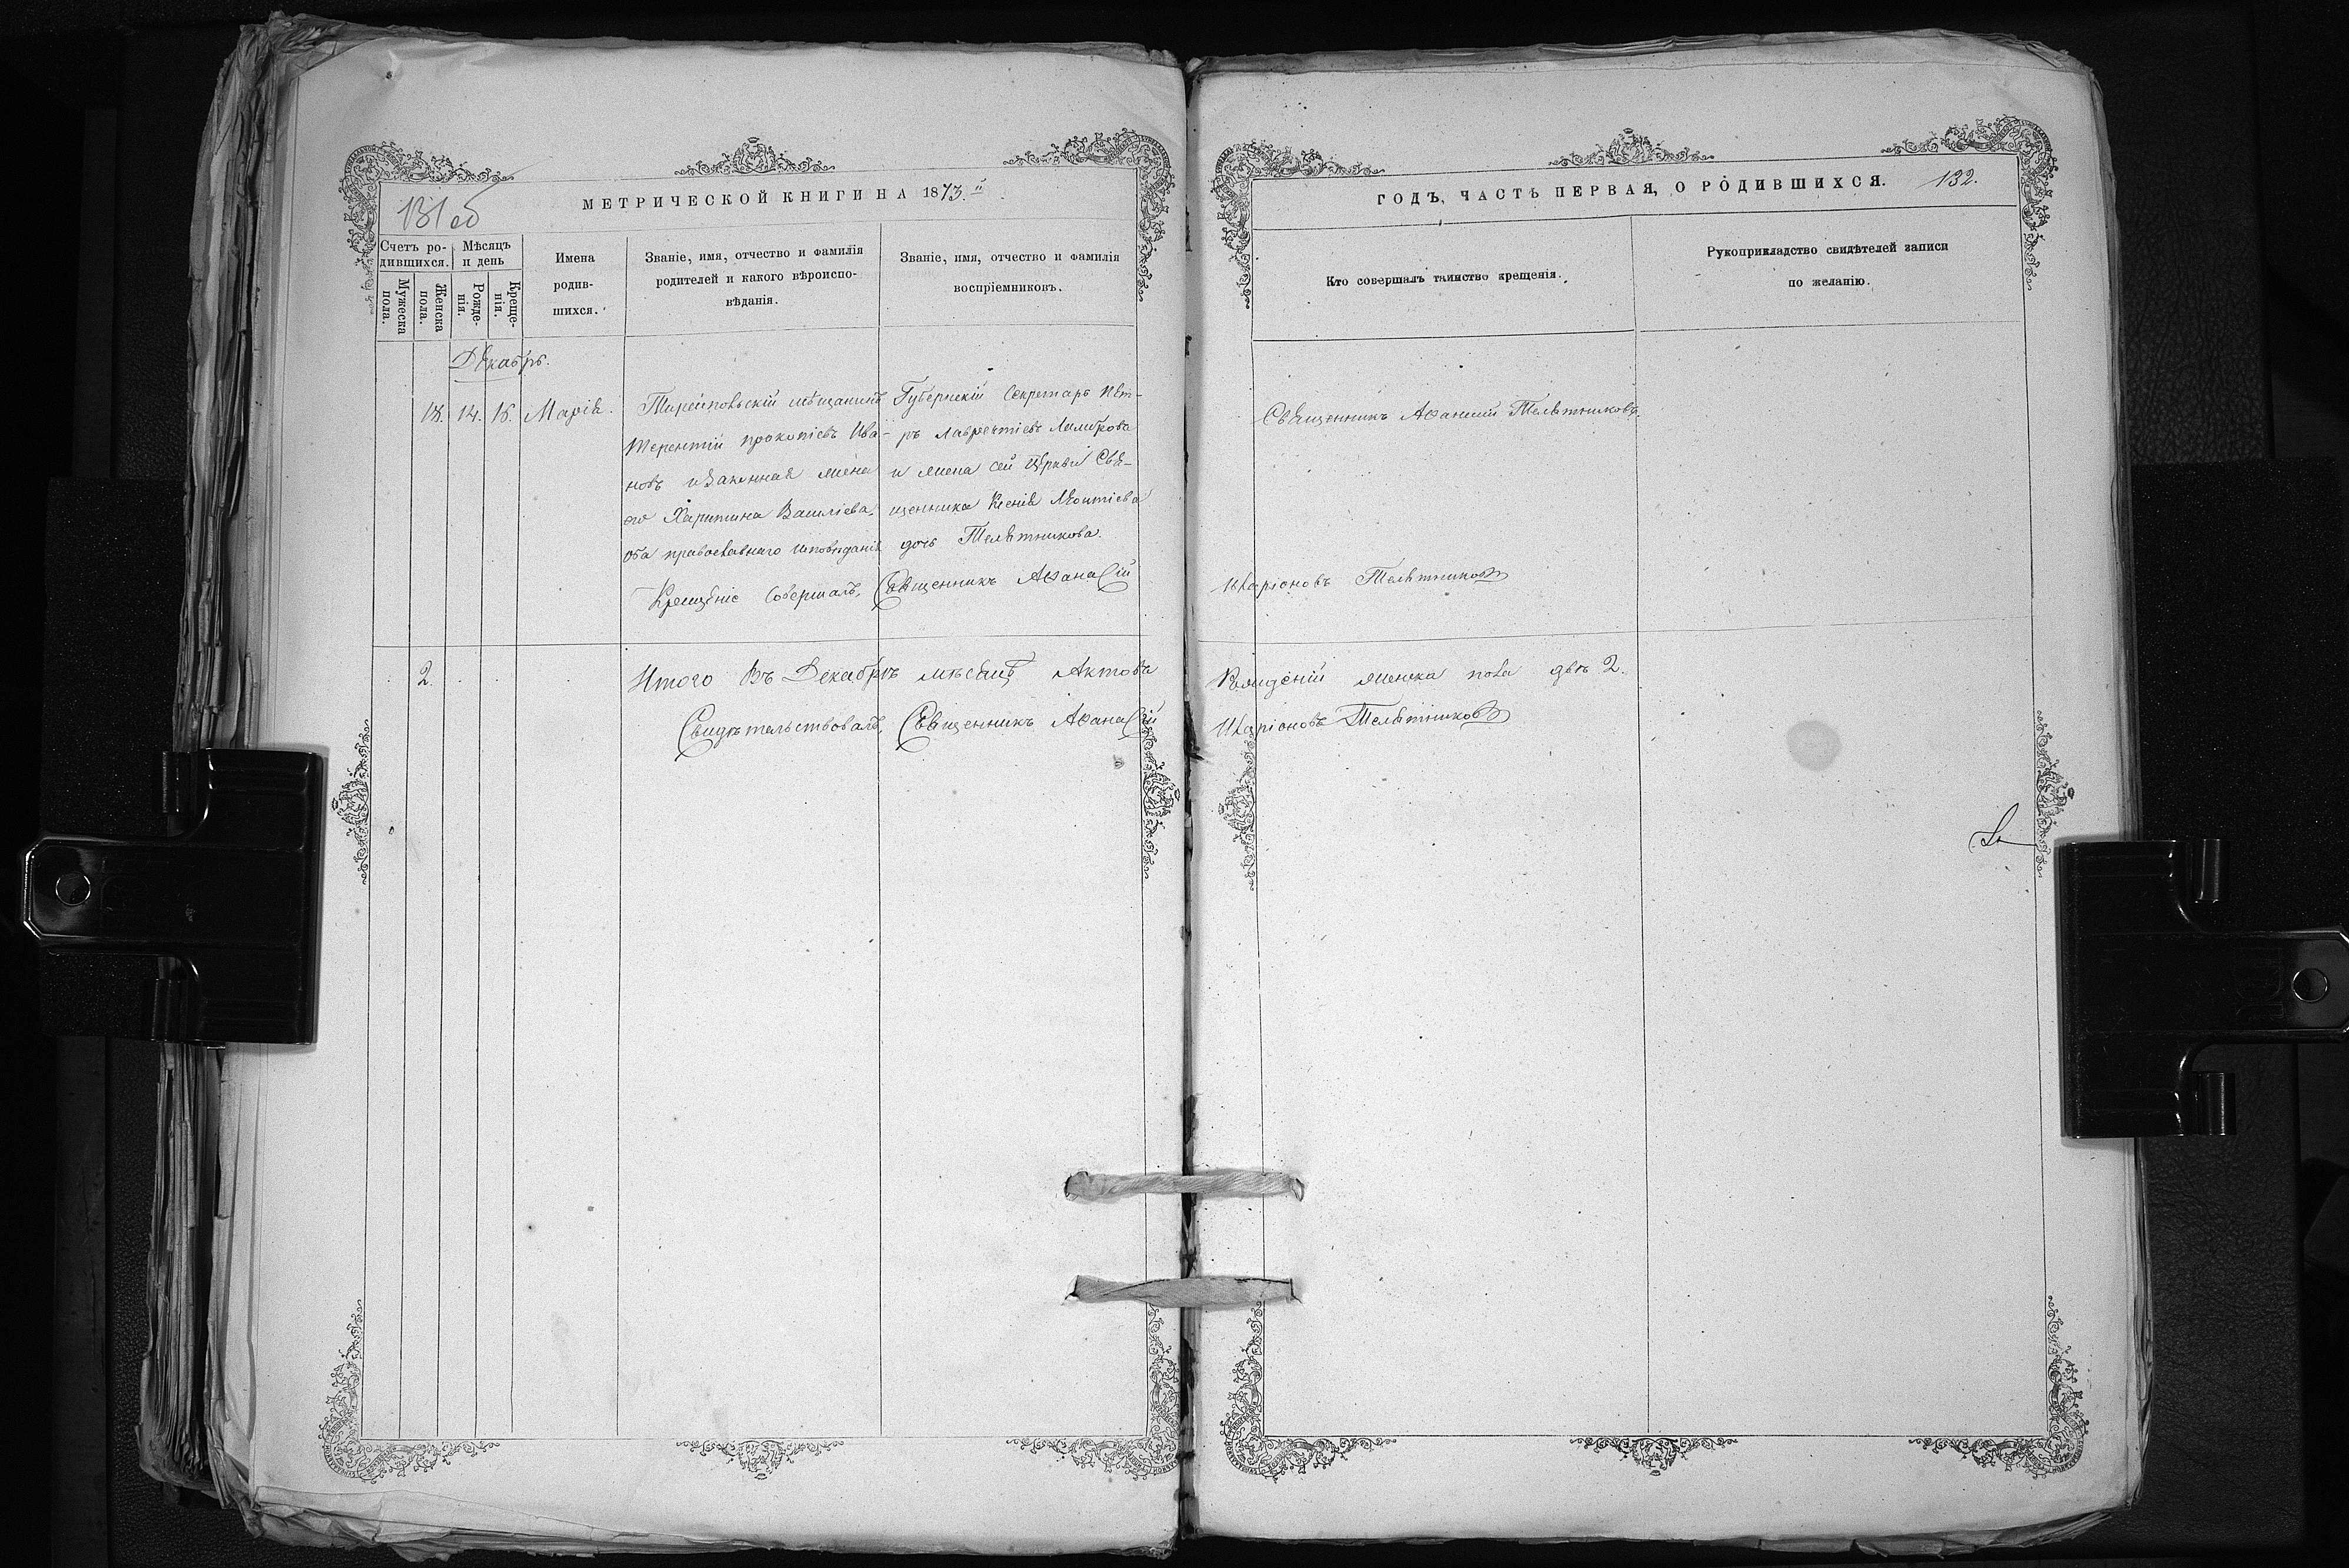 МЕТРИЧЕСКОЙ КНИГИ НА 1873.й
131 об
Счетъ ро-
дившихся.
Мѣсяцъ
и день
Мужеска
пола.
Женска
пола.
Рожде-
нія.
Креще-
нія.
Имена
родив-
шихся.
Званіе, имя, отчество и фамилія
родителей и какого вѣроиспо-
вѣданія.
Званіе, имя, отчество и фамилія
воспріемниковъ.
Декабрь.
18. 14. 16. Марія.
мѣщанинъ
Терентій Прокопіевъ Ива-
новъ и законная жена
его Харитина Василіева,
оба православнаго исповѣданія
Губернскій Секретарь Пет-
ръ Лаврентіевъ
и жена сей Церкви Свя-
щенника Ксенія Леонтіева
дочь Телятникова.
Крещеніе Совершалъ, Священникъ Афанасій
2. Итого Въ Декабрѣ мѣсяцѣ Актовъ
Свидѣтельствовалъ, Священникъ Афанасій
ГОДЪ, ЧАСТЬ ПЕРВАЯ, О РОДИВШИХСЯ. 132.
Кто совершалъ таинство крещенія.
Рукоприкладство свидѣтелей записи
по желанію.
Священникъ Афанасій Телятниковъ.
Иларіоновъ Телятниковъ
Рожденій женска пола двѣ 2.
Иларіоновъ Телятниковъ